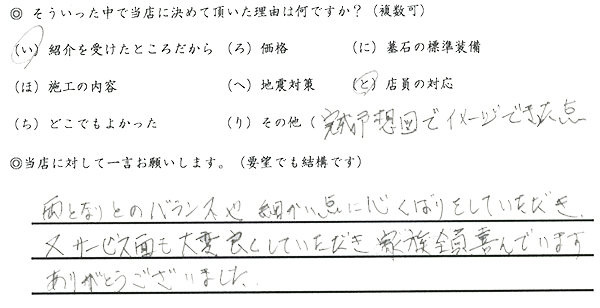 ◎ そういった中で当店に決めて頂いた理由は何ですか？（複数可）
（い）紹介を受けたところだから （ろ）価格 （に）墓石の標準装備
（ほ）施工の内容 （へ）地震対策 （と）店員の対応
（ち）どこでもよかった （り）その他（ 完成予想図でイメージできた点
◎当店に対して一言お願いします。（要望でも結構です）
両となりとのバランスや細かい点に心くばりをしていただき、
又サービス面も大変良くしていただき家族全員喜んでいます
ありがとうございました。